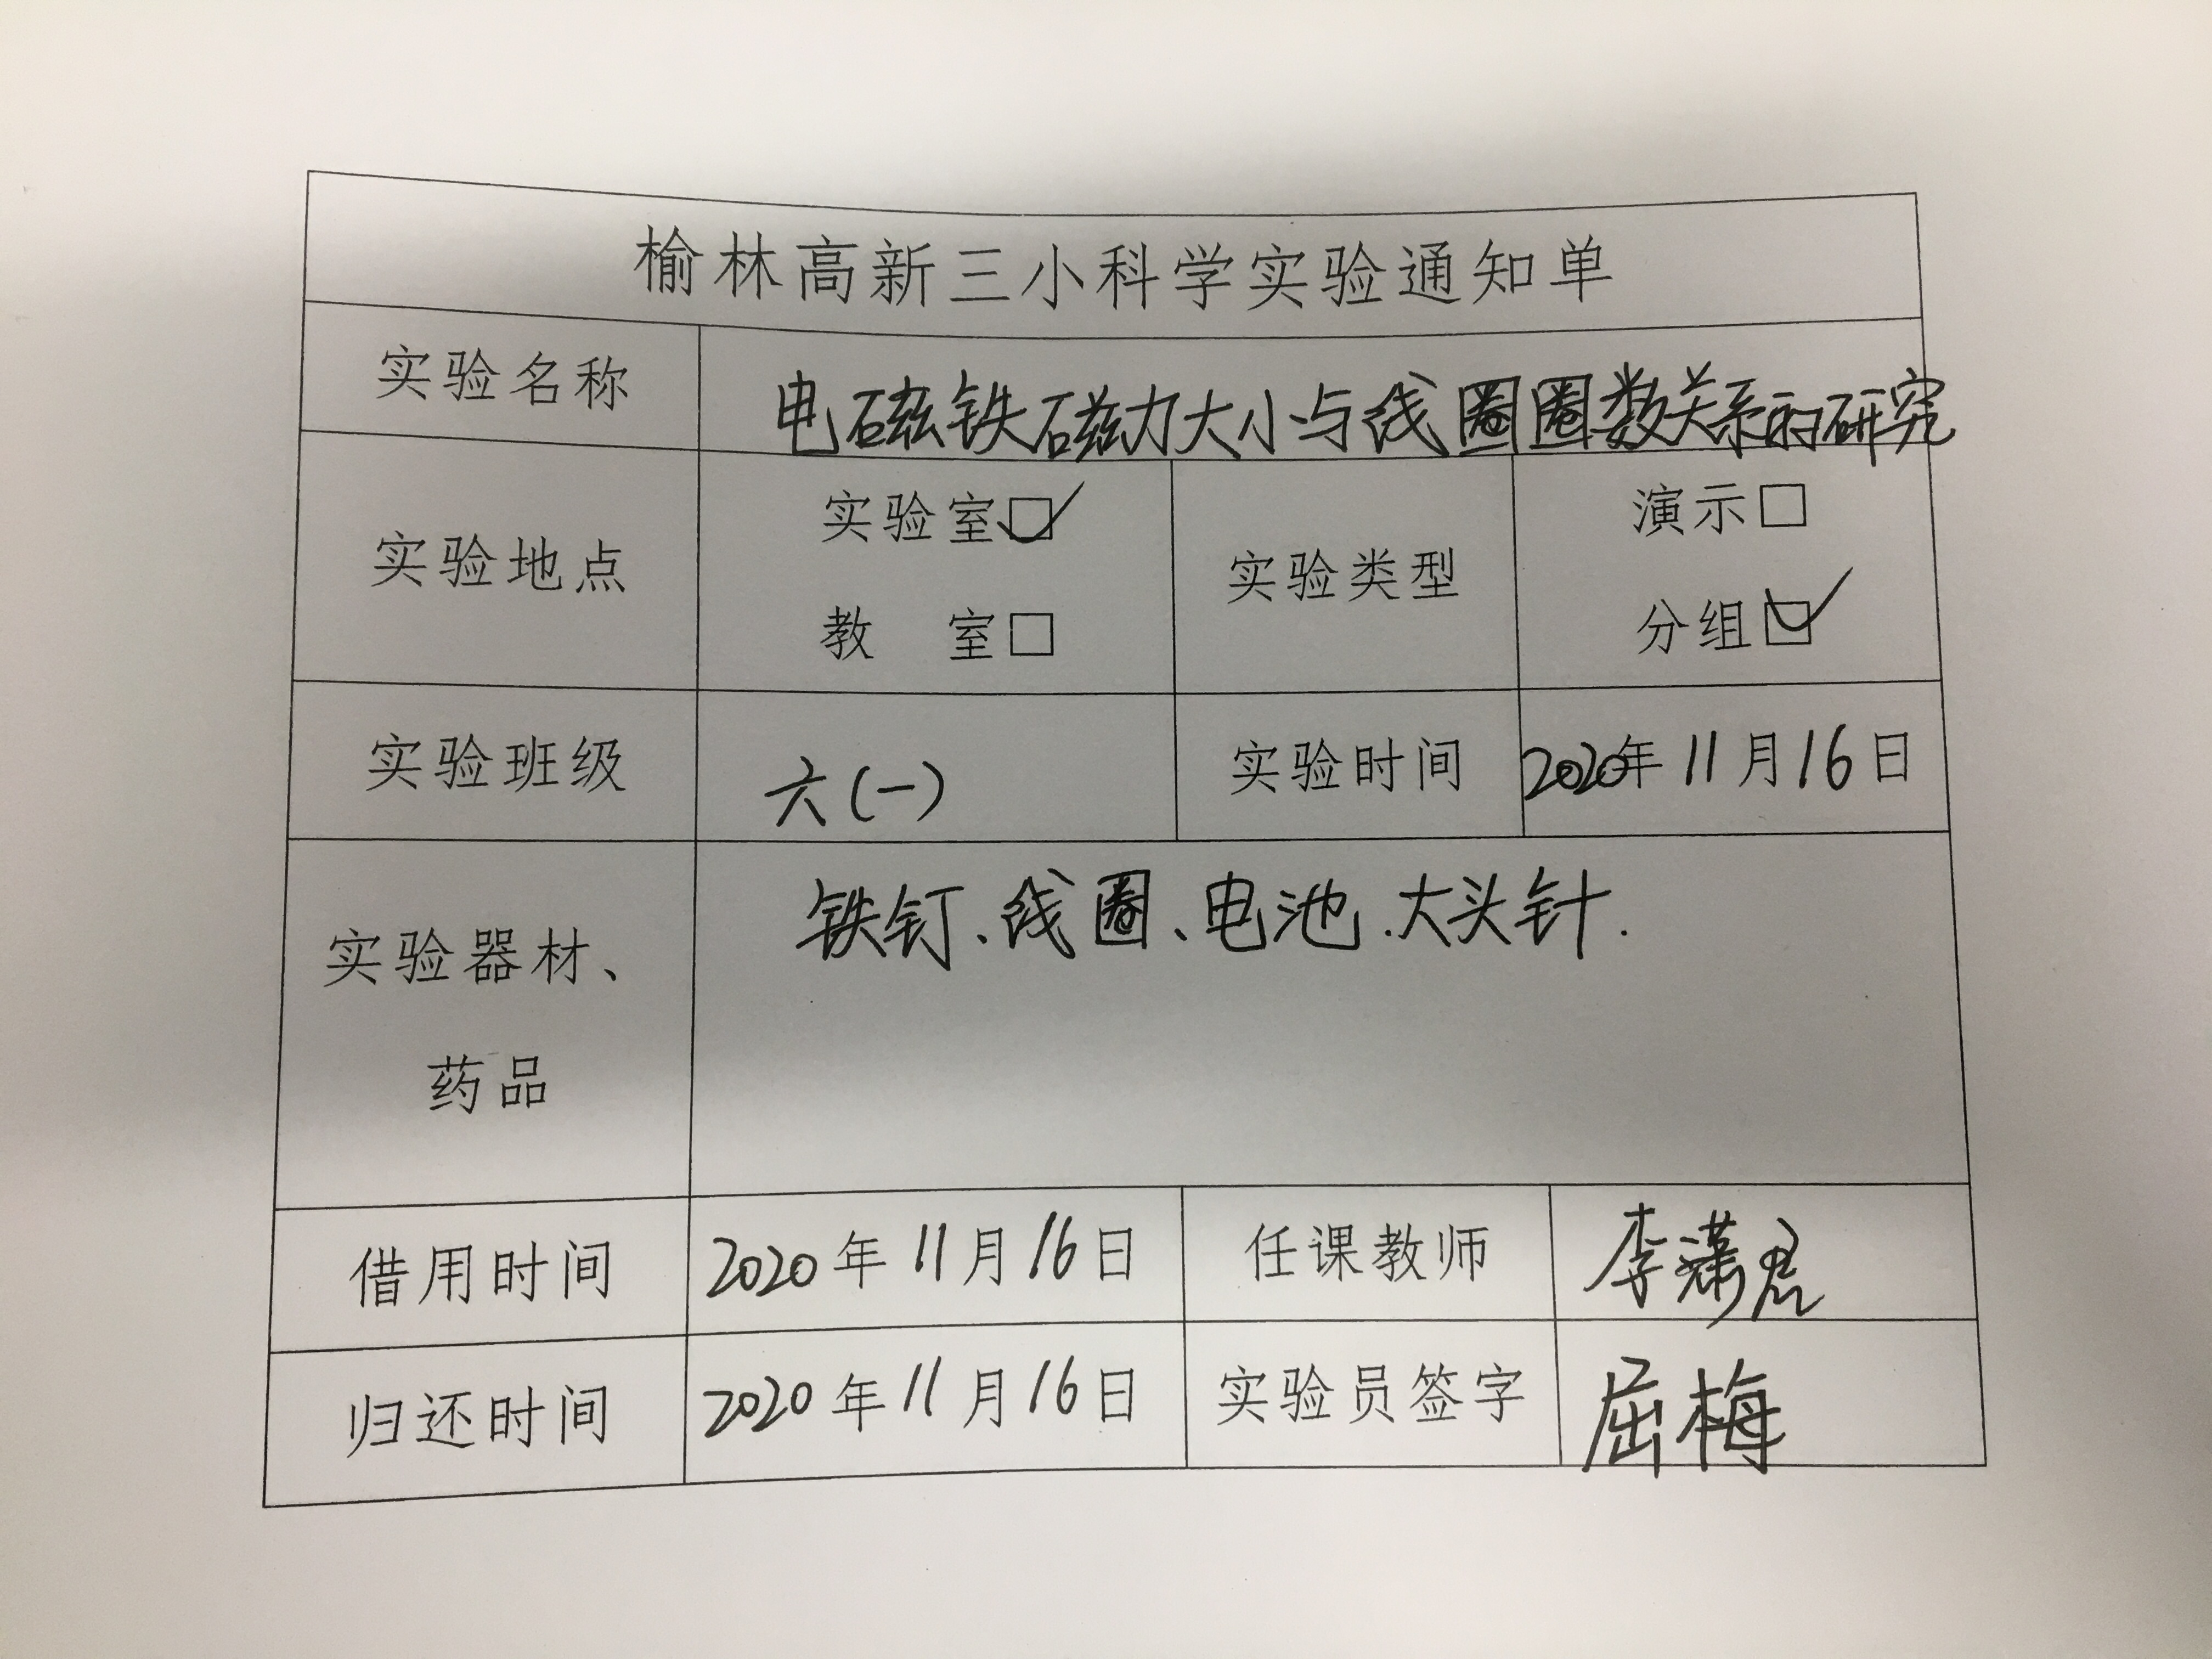 榆林高新三小科学实验通知单
实验名称 电磁铁磁力大小与线圈圈数关系的研究
实验地点 实验室☑ 教 室□ 实验类型 演示□ 分组☑
实验班级 六(一) 实验时间 2020年11月16日
实验器材、药品 铁钉、线圈、电池.大头针.
借用时间 2020年11月16日 任课教师 李潇
归还时间 2020年11月16日 实验员签字 屈梅